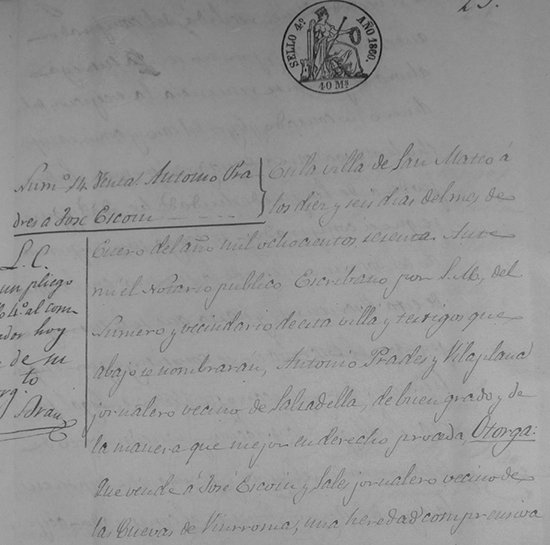 23.
SELLO 4º AÑO 1860.
40 Mˢ
Numº 14 Venta. Antonio Pra
des á José Escoin
En la villa de San Mateo á
los diez y seis dias del mes de
Enero del año mil ochocientos sesenta. Ante
mi el Notario publico Escribano por S.M., del
Numero y vecindario de esta villa y testigos que
abajo se nombrarán, Antonio Prades y Vilaplana
jornalero vecino de Salsadella, de buen grado y de
la manera que mejor en derecho proceda, Otorga:
Que vende á José Escoin y Sales jornalero vecino de
las Cuevas de Vinromá, una heredad comprensiva
L. C.
un pliego
lo 4º al com
ador hoy
de su
to
rg.